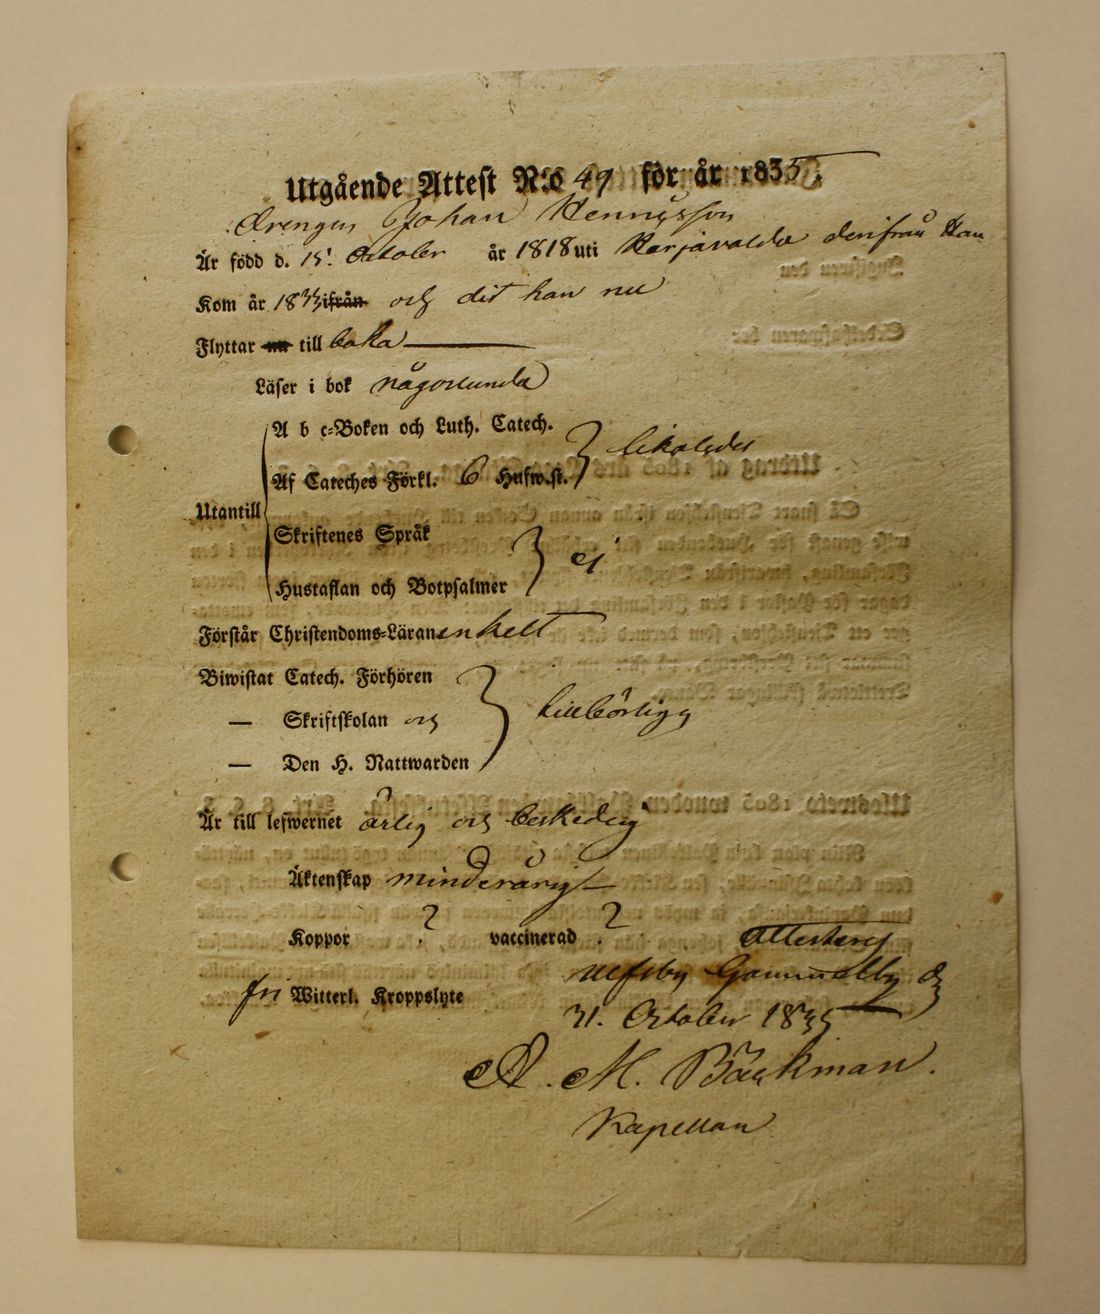 Utgående Attest N:o 49 för år 1835.
Drengen Johan Hennigsson
Är född d. 15 October år 1818 uti Harjavalda derifrån Han
Kom år 1833 ifrån och dit han nu
Flyttar nu till baka
Läser i bok någorlunda
A b c-Boken och Luth. Catech.
likaledes
Af Cateches Förkl. 6 Hufw.st.
Utantill
Skriftenes Språk
ej
Hustaflan och Botpsalmer
Förstår Christendoms-Läran enkelt
Biwistat Catech. Förhören
— Skriftskolan och tillbörligt
— Den H. Nattwarden
Är till lefwernet ärlig och beskedlig
Äktenskap minderårig
Koppor ? vaccinerad ? Attesteras
Ulfsby Gammelby d.
fri Witterl. Kroppslyte
31. October 1835
A. M. Bäckman.
Kapellan